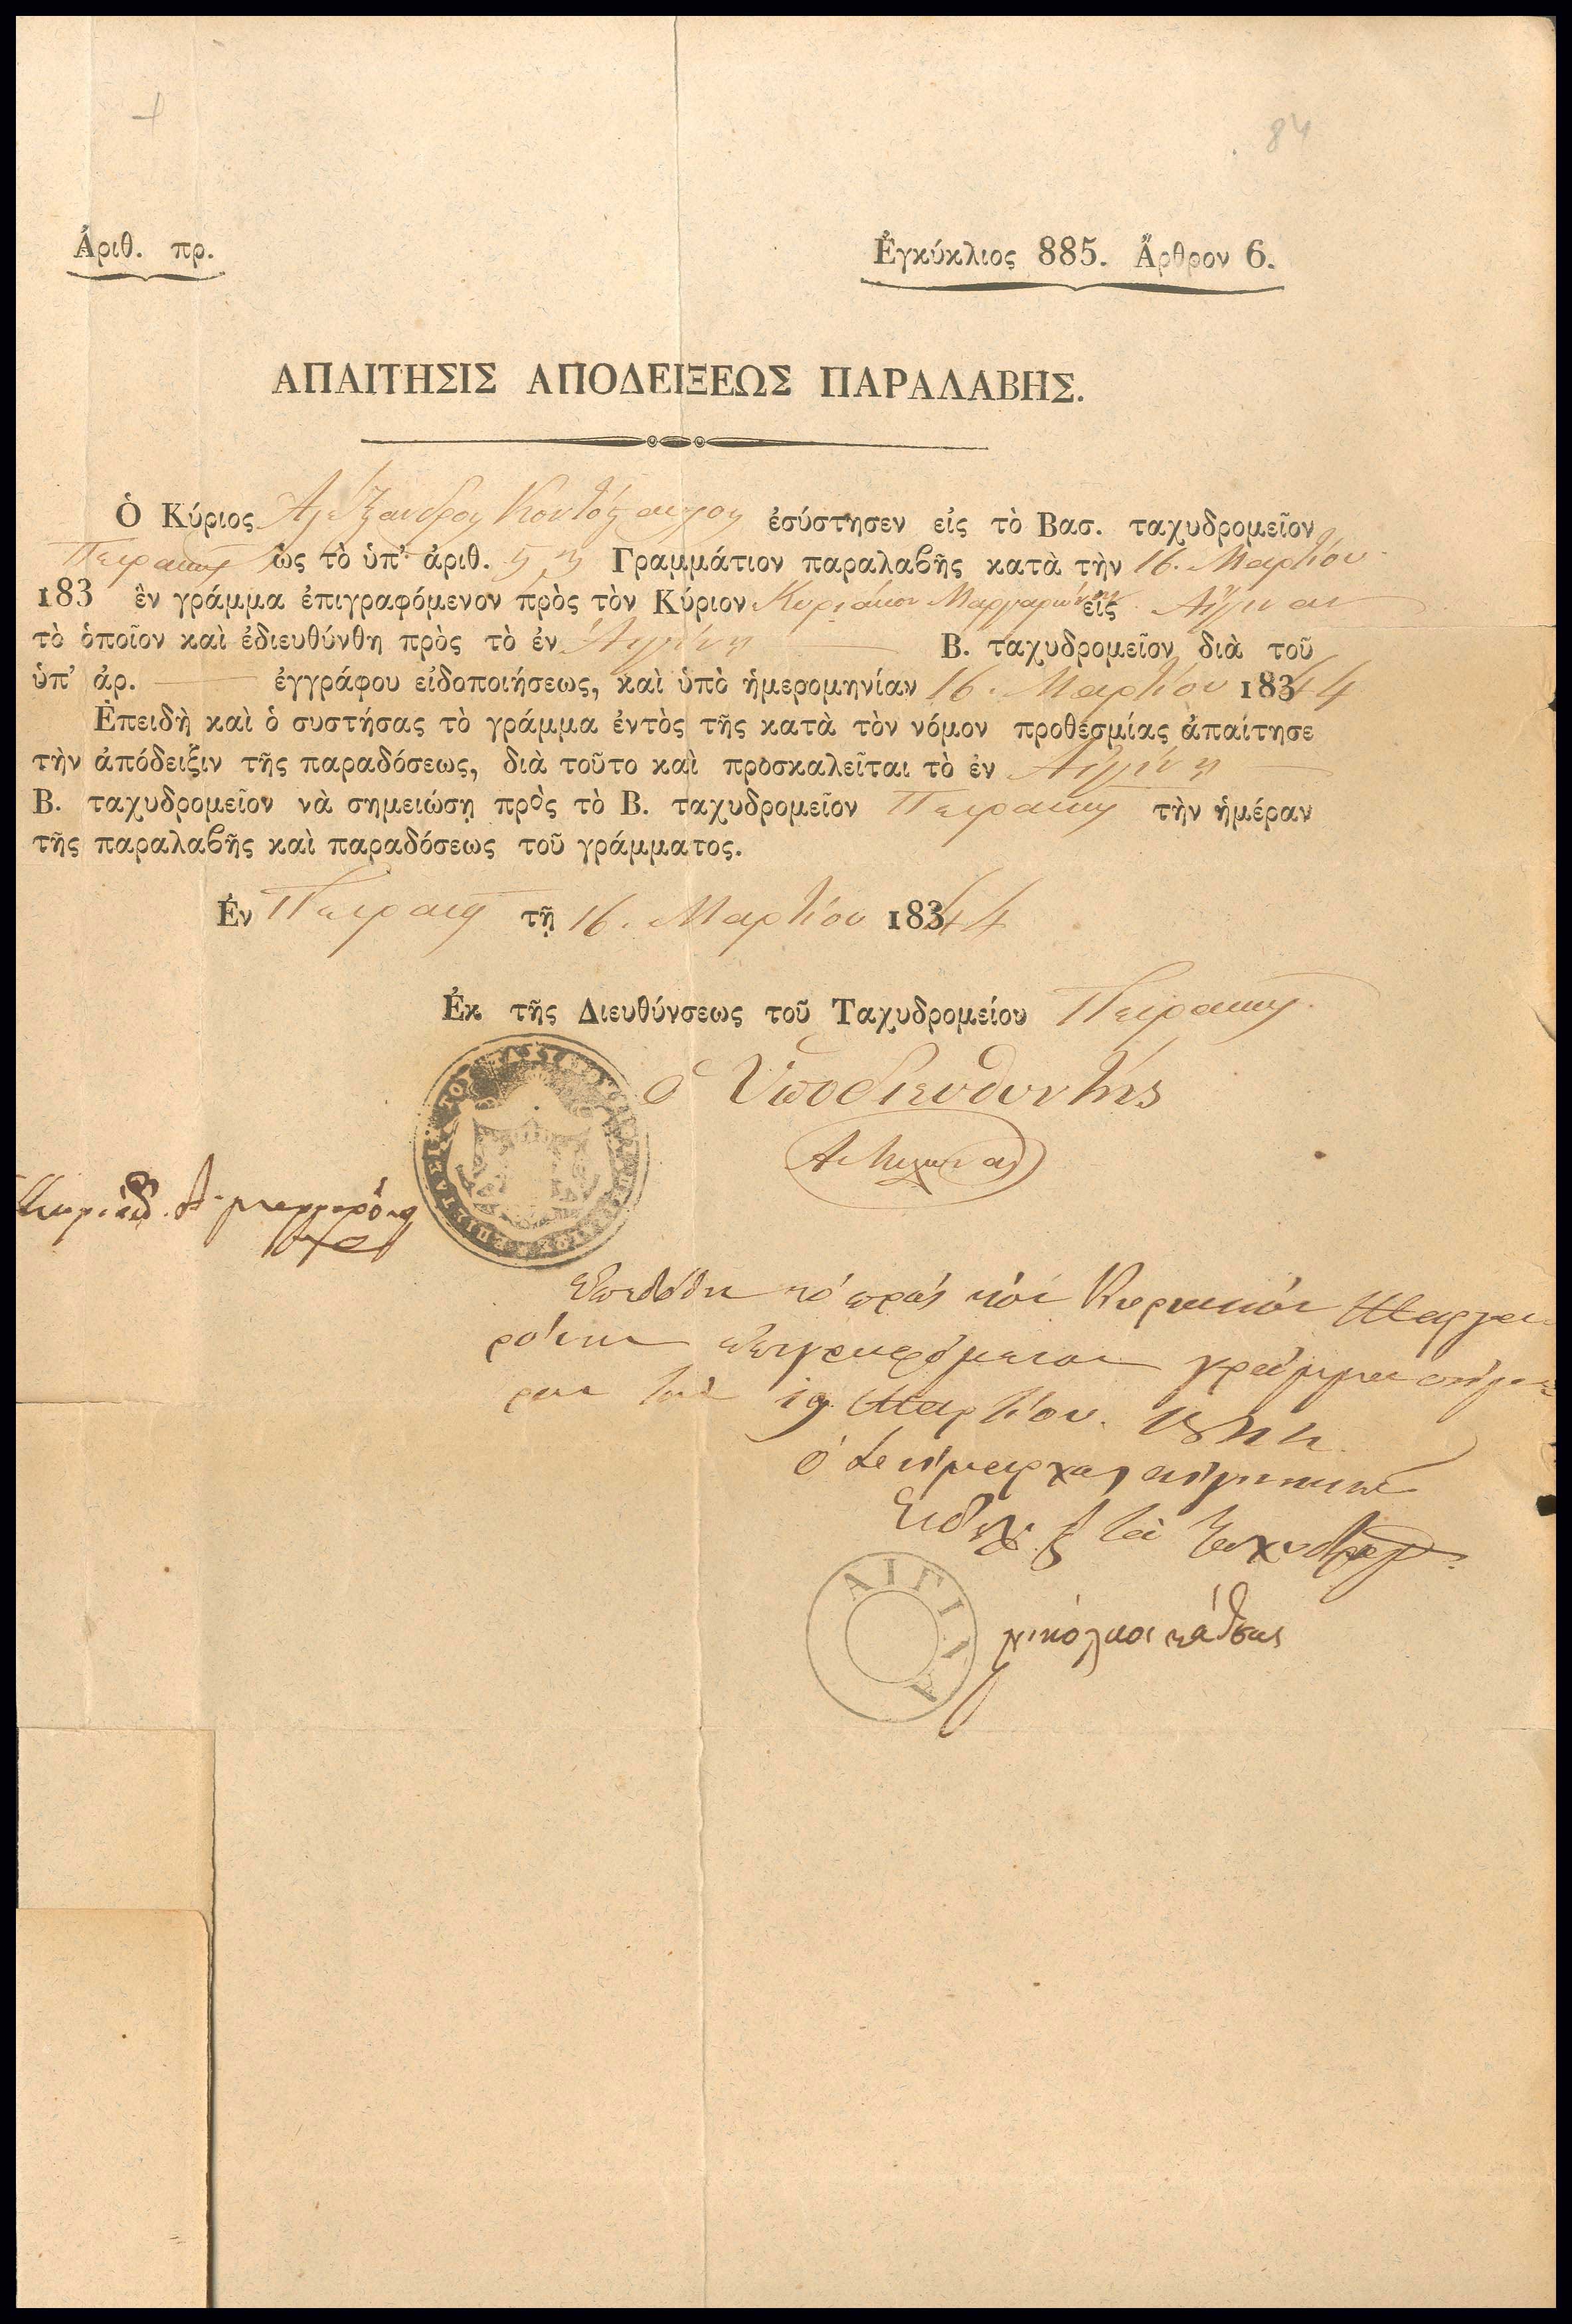 84
Ἀριθ. πρ.
Ἐγκύκλιος 885. Ἄρθρον 6.
ΑΠΑΙΤΗΣΙΣ ΑΠΟΔΕΙΞΕΩΣ ΠΑΡΑΛΑΒΗΣ.
Ὁ Κύριος Ἀλέξανδρος Κοντόσταυλος ἐσύστησεν εἰς τὸ Βασ. ταχυδρομεῖον
Πειραιῶς ὡς τὸ ὑπ' ἀριθ. Γραμμάτιον παραλαβῆς κατὰ τὴν 16. Μαρτίου
183 ἓν γράμμα ἐπιγραφόμενον πρὸς τὸν Κύριον Κυριάκον Μαργαρώνην εἰς Αἴγιναν
τὸ ὁποῖον καὶ ἐδιευθύνθη πρὸς τὸ ἐν Αἰγίνῃ Β. ταχυδρομεῖον διὰ τοῦ
ὑπ' ἀρ. ἐγγράφου εἰδοποιήσεως, καὶ ὑπὸ ἡμερομηνίαν 16. Μαρτίου 1844
Ἐπειδὴ καὶ ὁ συστήσας τὸ γράμμα ἐντὸς τῆς κατὰ τὸν νόμον προθεσμίας ἀπαίτησε
τὴν ἀπόδειξιν τῆς παραδόσεως, διὰ τοῦτο καὶ προσκαλεῖται τὸ ἐν Αἰγίνῃ
Β. ταχυδρομεῖον νὰ σημειώσῃ πρὸς τὸ Β. ταχυδρομεῖον Πειραιῶς τὴν ἡμέραν
τῆς παραλαβῆς καὶ παραδόσεως τοῦ γράμματος.
Ἐν Πειραιεῖ τῇ 16. Μαρτίου 1844
Ἐκ τῆς Διευθύνσεως τοῦ Ταχυδρομείου Πειραιῶς.
ὁ Ὑποδιευθυντὴς
Ἐπεδόθη τὸ πρὸς τὸν Κυριακὸν Μαργα
ρόνην ἐπιγραφόμενον γράμμα σήμε
ρον τὴν 19 Μαρτίου. 1844
ὁ Λιμενάρχης
ΑΙΓΙΝΑ
νικόλαος